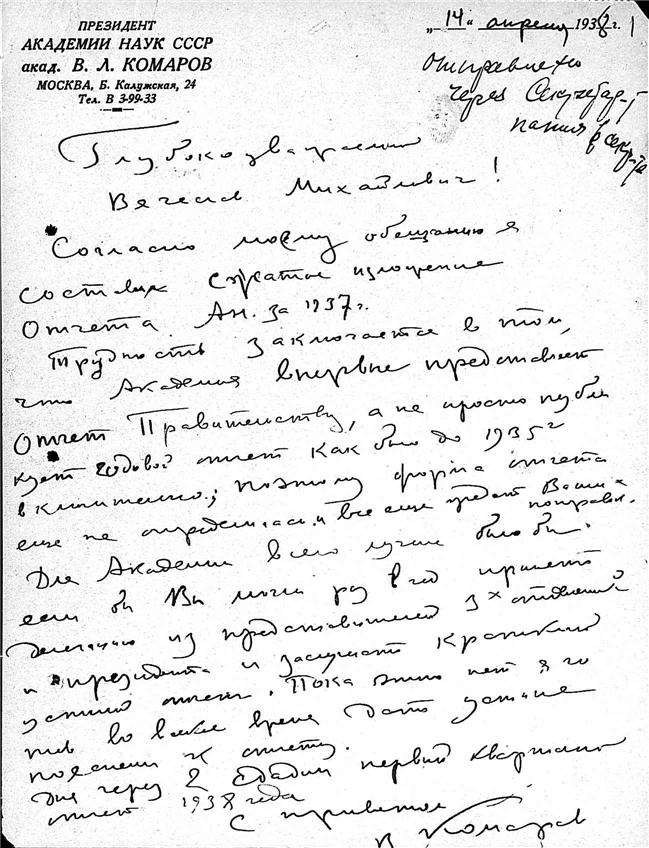 ПРЕЗИДЕНТ
АКАДЕМИИ НАУК СССР
акад. В. Л. КОМАРОВ
МОСКВА, Б. Калужская, 24
Тел. В 3-99-33
„14" апреля 1938 г.
Отправлено
через Секр
Глубокоуважаемый
Вячеслав Михайлович!
Согласно моему обещанию я
составил сжатое изложение
Отчета Ак. за 1937 г.
Трудность заключается в том,
что Академия впервые представляет
отчет Правительству, а не просто публи
кует годовой отчет как было до 1935 г
включительно; поэтому форма отчета
еще не определилась и все еще Ваших
поправок.
Для Академии всего лучше было бы
если бы Вы могли раз в год принять
делегацию из представителей 3х отделений
и президента и заслушать краткий
устный отчет. Пока этого нет я го
тов во всякое время дать устные
пояснения к отчету.
Дня через 2 сдадим первый квартальн
отчет 1938 года
С приветом
В Комаров